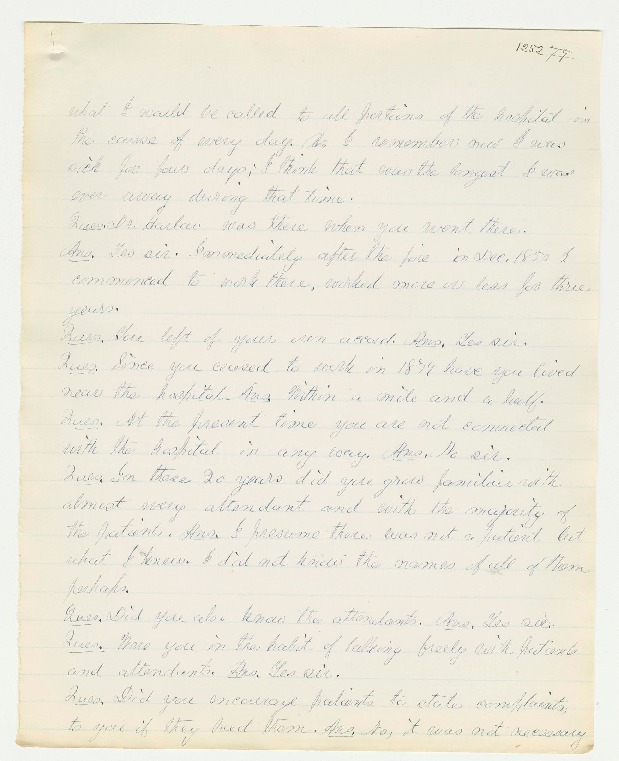 1252 79.
what I would be called to all portions of the hospital in
the course of every day. As I remember now I was
sick for four days; I think that was the longest I was
ever away during that time.
Ques. Dr. Harlow was there when you went there.
Ans. Yes sir. Immediately after the fire in Dec. 1850 I
commenced to work there, worked more or less for three
years.
Ques. You left of your own accord. Ans. Yes sir.
Ques. Since you ceased to work in 1874 have you lived
near the hospital. Ans. Within a mile and a half.
Ques. At the present time you are not connected
with the hospital in any way. Ans. No sir.
Ques. In these 20 years did you grow familiar with
almost every attendant and with the majority of
the patients. Ans. I presume there was not a patient but
what I knew. I did not know the names of all of them
perhaps.
Ques. Did you also know the attendants. Ans. Yes sir.
Ques. Were you in the habit of talking freely with patients
and attendants. Ans. Yes sir.
Ques. Did you encourage patients to state complaints
to you if they had them. Ans. No, it was not necessary